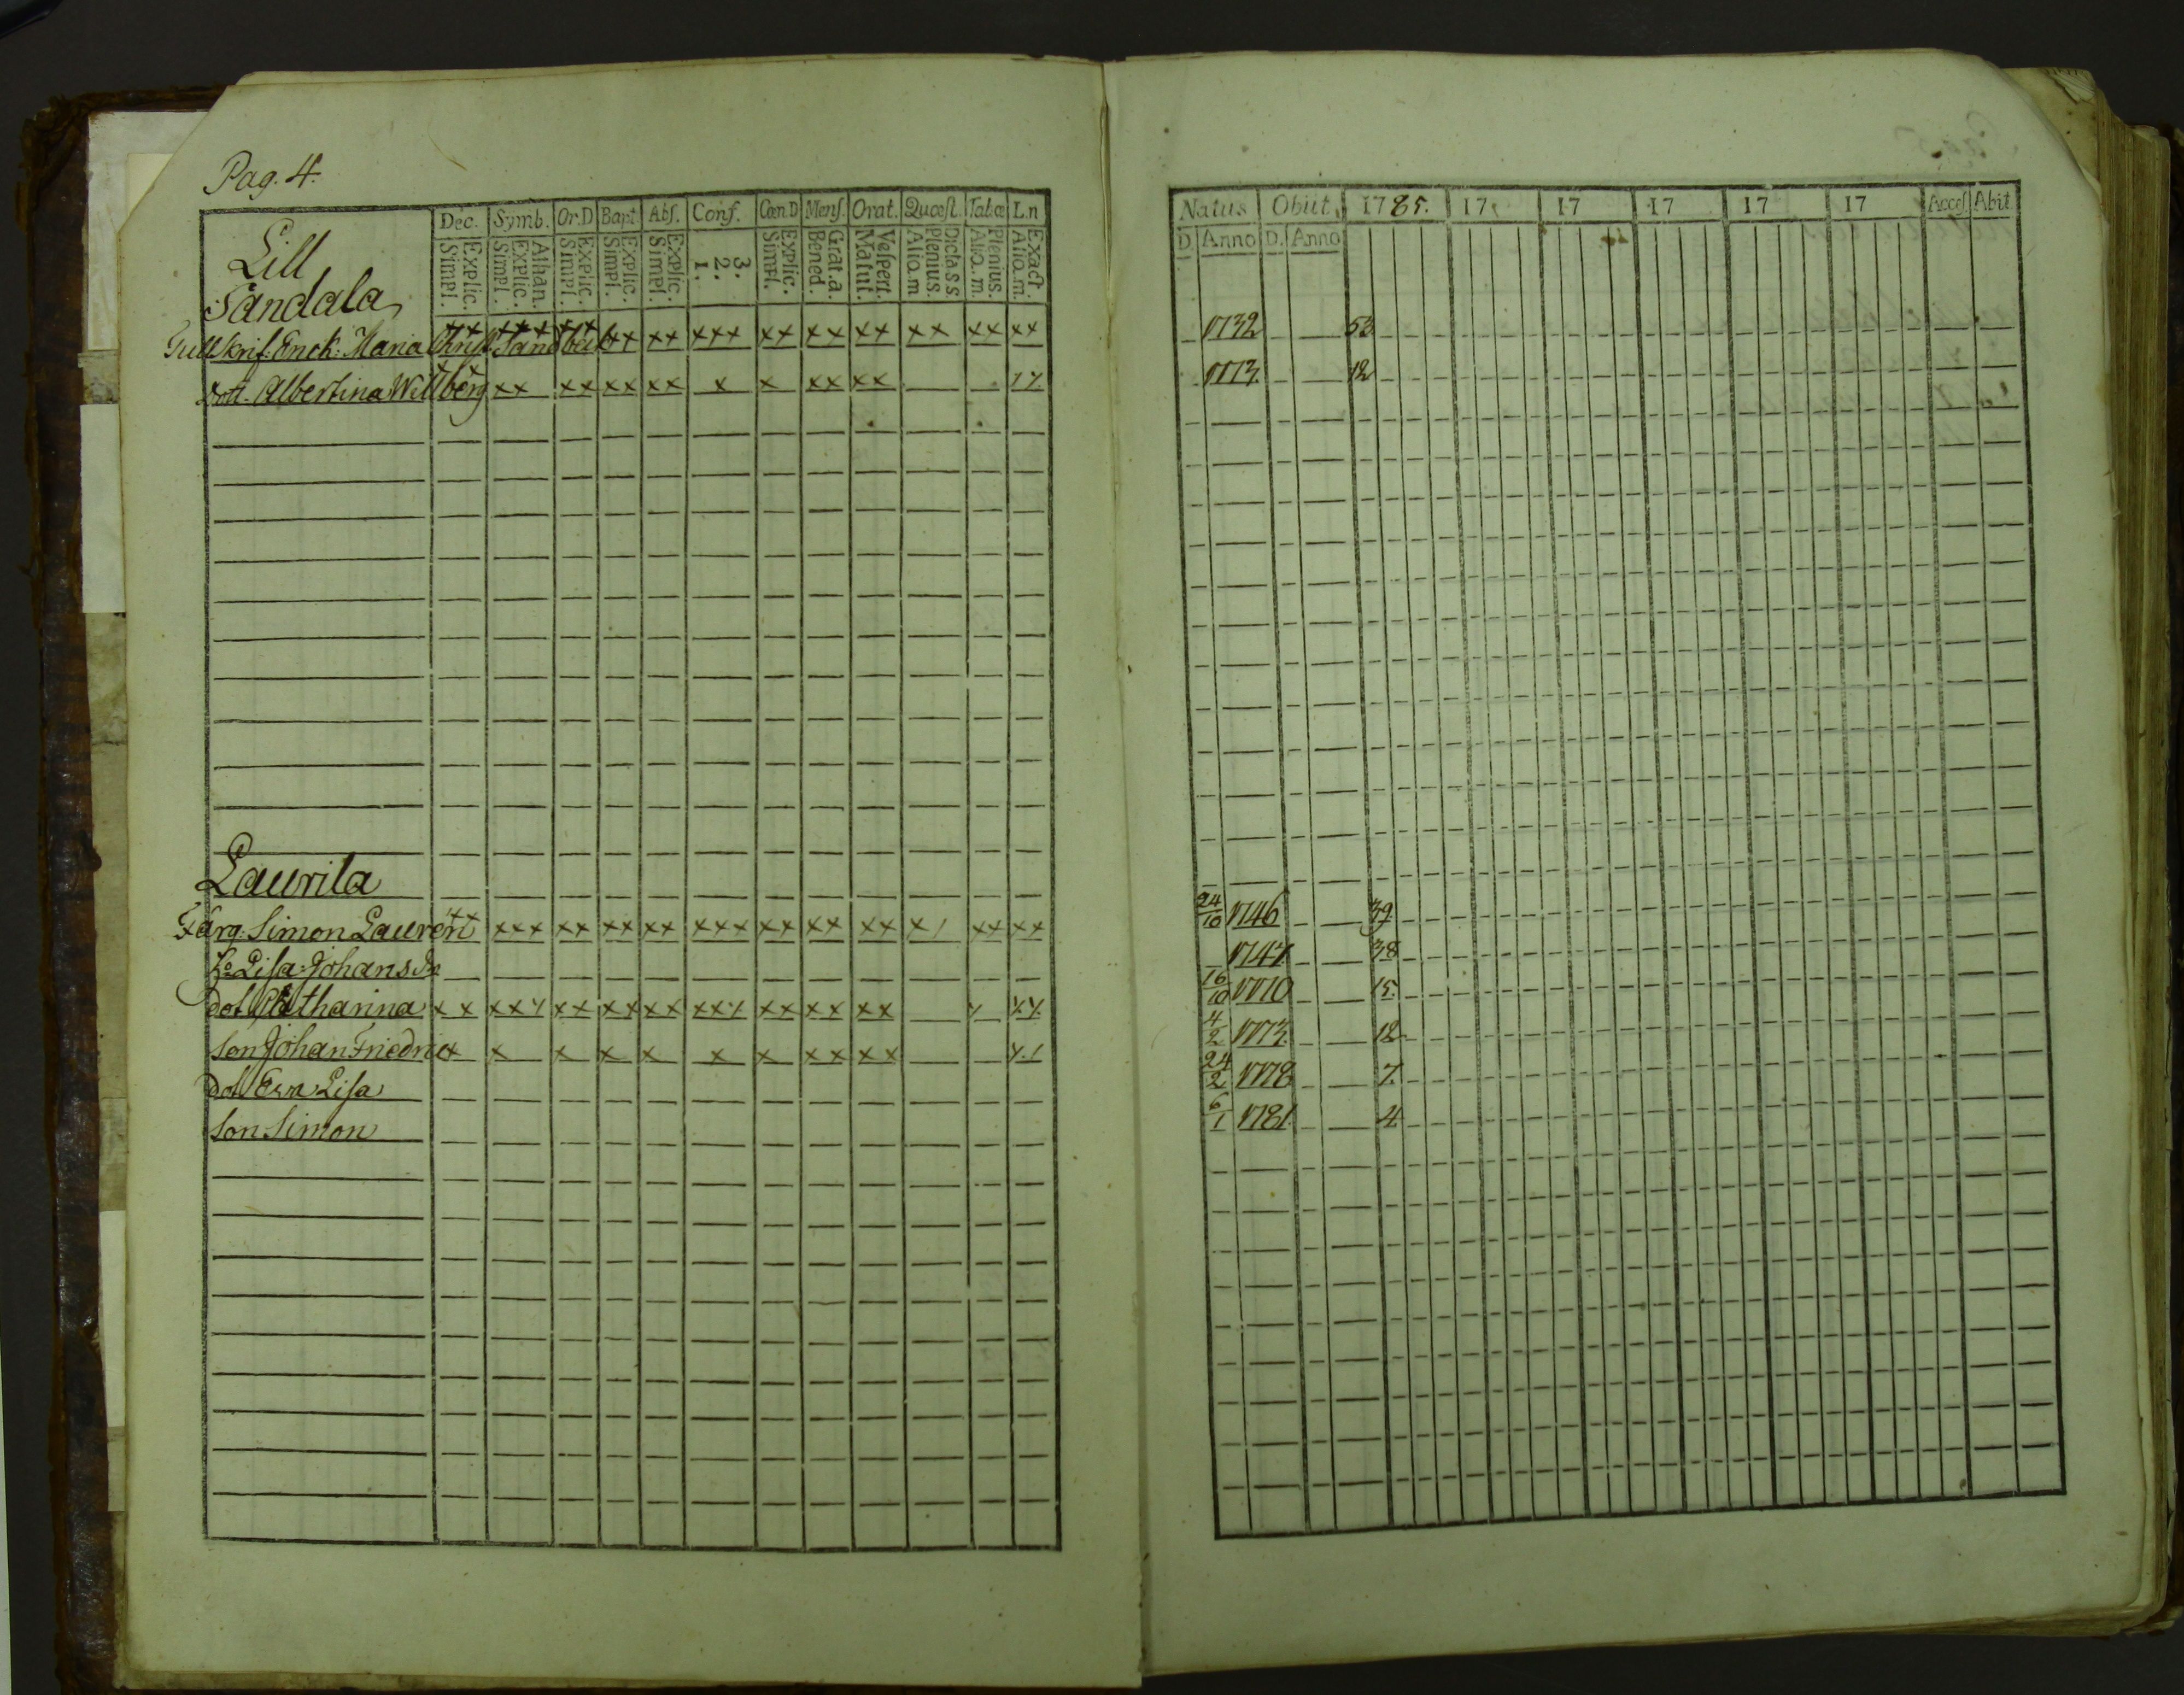 Pag. 4.
Dec. Symb. Or.D Bapt. Abſ. Conf. Cœn D Menſ. Orat. Quœſt. Tab.œ L.n
Explic. Simpl. Athan. Explic. Simpl. Explic. Simpl. Explic. Simpl. Explic. Simpl. 3. 2. 1. Explic. Simpl. Grat.a. Bened. Veſpert. Matut. Dicta s.s. Plenius. Alio.m Plenius. Alio.m. Exact. Alio.m.
Lill
Sandala
Tullskrif. Enck: Maria Christ. Sand xx xxx xx xx xx xxx xx xx xx xx xx xx
Dott. Albertina Willberg x x xx xx xx xx x x xx xx
Laurila
Färg. Simon Lauren xx xxx xx xx xx xxx xx xx xx x/ xx xx
H:o Lisa Johans dr
dot Catharina x x xxx xx xx xx xxx xx xx xx x xx
Son Johan Friedric x x x x x x x xx xx
dot Eva Lisa
Son Simon
Natus Obiit. 1785. 17 17 17 17 17 Acceſ. Abit
D Anno D. Anno
1732 53
1773. 12
24/10 1746 39
1747. 38
16/10 1770 15.
4/2 1773. 12
24/2 1778 7.
6/1 1781. 4